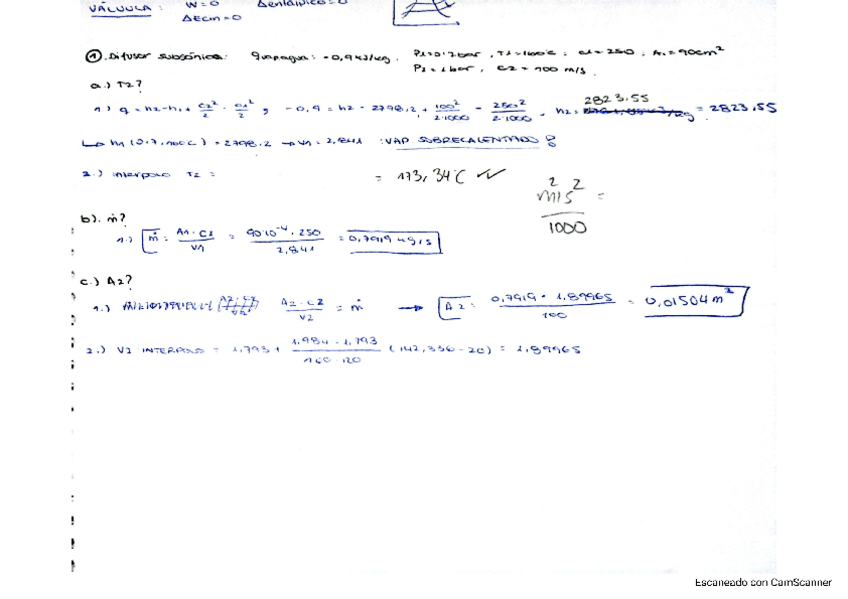 VÁLVULA: W=0 Δentálpico=0
ΔEcin=0
① Difusor subsónico: qvapagua: -0,9 kJ/kg. P1=0.7bar, T1=100ºC; c1=250, A1=90cm²
P2=1bar, c2=100 m/s.
a.) T2?
1) q = h2-h1+ c2²/2 - c1²/2 ; -0,9 = h2 - 2798,2 + 100²/2·1000 - 250²/2·1000 . h2= 2823.55 = 2823,55
↳ h1 (0.7,100C) = 2798.2 → v1 = 2,841 :VAP SOBRECALENTADO
2.) interpolo T2 = = 173,34ºC ✓✓
m/s² ² =
1000
b). ṁ?
1.) ṁ: A1·c1/v1 = 90·10⁻⁴·250/2,841 = 0,7919 kg/s
c.) A2?
1.) A2·c2/v2 = ṁ → A2: 0,7919·1,89965/100 = 0,01504m²
2.) V2 INTERPOLO = 1,793 + 1.984-1.793/160-120 (142,336-20) = 1,89965
Escaneado con CamScanner